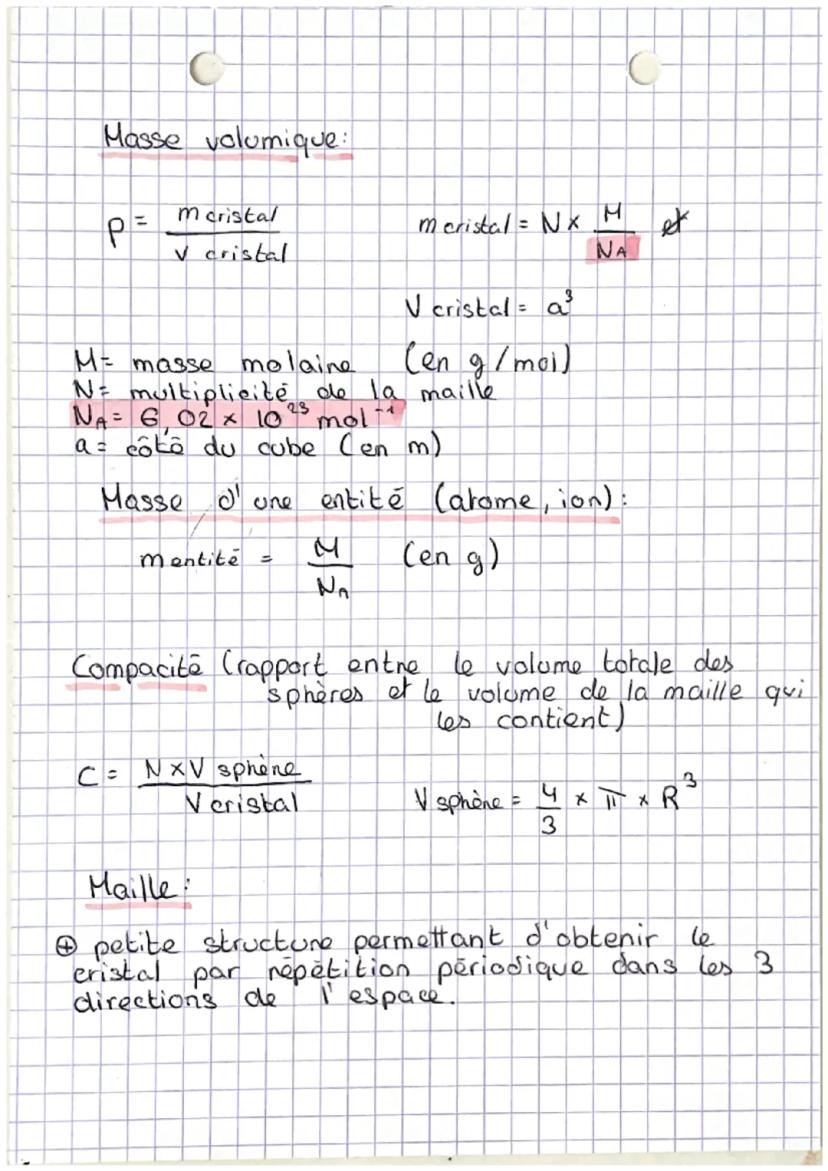 Masse volumique:
ρ = m cristal / v cristal    m cristal = N x M / NA et
V cristal = a³
M = masse molaire (en g/mol)
N = multiplicité de la maille
NA = 6,02 x 10²³ mol⁻¹
a = côté du cube (en m)
Masse d'une entité (atome, ion):
m entité = M / NA (en g)
Compacité (rapport entre le volume totale des
sphères et le volume de la maille qui
les contient)
C = N x V sphère / V cristal    V sphère = 4/3 x π x R³
Maille:
⊕ petite structure permettant d'obtenir le
cristal par répétition périodique dans les 3
directions de l'espace.